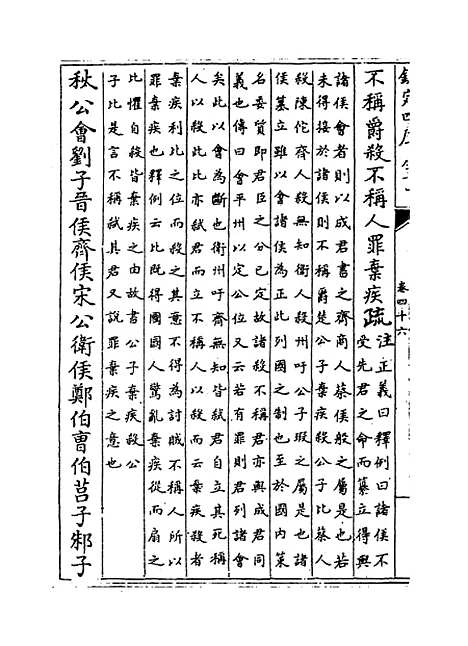 欽定四庫全書
卷四十六
不稱爵殺不稱人罪棄疾疏
注正義曰釋例曰諸侯不
受先君之命而簒立得與
諸侯會者則以成君書之齊商人蔡侯般之屬是也若
未得接於諸侯則不稱爵楚公子棄疾殺公子比蔡人
殺陳佗齊人殺無知衛人殺州吁公子瑕之屬是也諸
侯簒立雖以會諸侯為正此列國之制也至於國內策
名委質即君臣之分已定故諸殺不稱君亦與成君同
義也傳曰會平州以定公位又云若有罪則君列諸會
矣此以會為斷也衛州吁齊無知皆弑君自立其死稱
人以殺此比亦弑君而立不稱人以殺而云棄疾殺者
棄疾利比之位而殺之其意不得為討賊不稱人所以
罪棄疾也釋例云比既得國國人驚亂棄疾從而扇之
比懼自殺皆棄疾之由故書公子棄疾殺公
子比是言不稱弑其君又說罪棄疾之意也
秋公會劉子晉侯齊侯宋公衛侯鄭伯曹伯莒子邾子